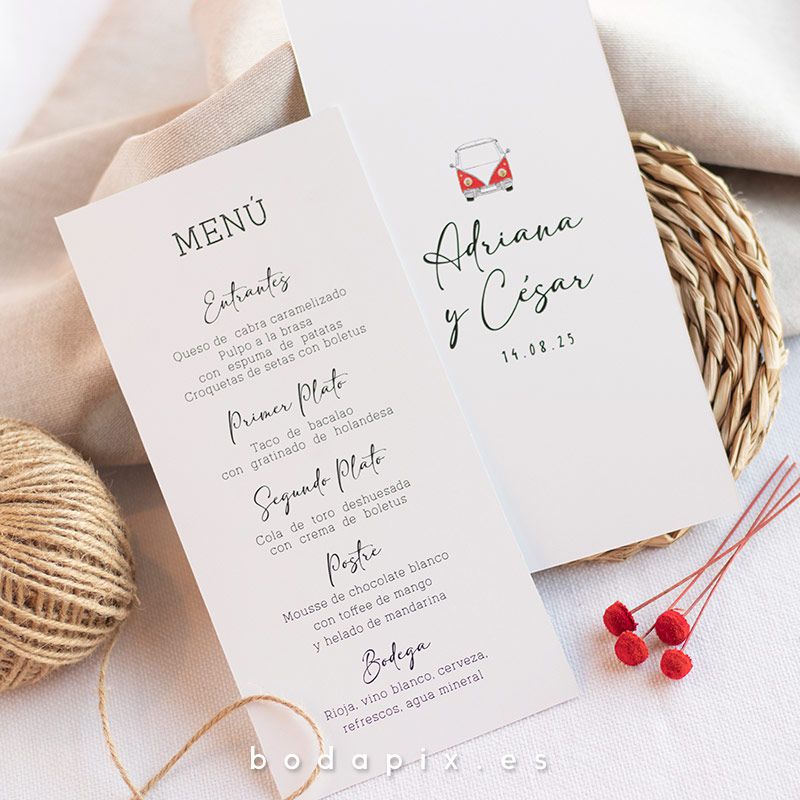 MENÚ
Entrantes
Queso de cabra caramelizado
Pulpo a la brasa
con espuma de patatas
Croquetas de setas con boletus
Primer Plato
Taco de bacalao
con gratinado de holandesa
Segundo Plato
Cola de toro deshuesada
con crema de boletus
Postre
Mousse de chocolate blanco
con toffee de mango
y helado de mandarina
Bodega
Rioja, vino blanco, cerveza,
refrescos, agua mineral
Adriana
y César
14.08.25
bodapix.es